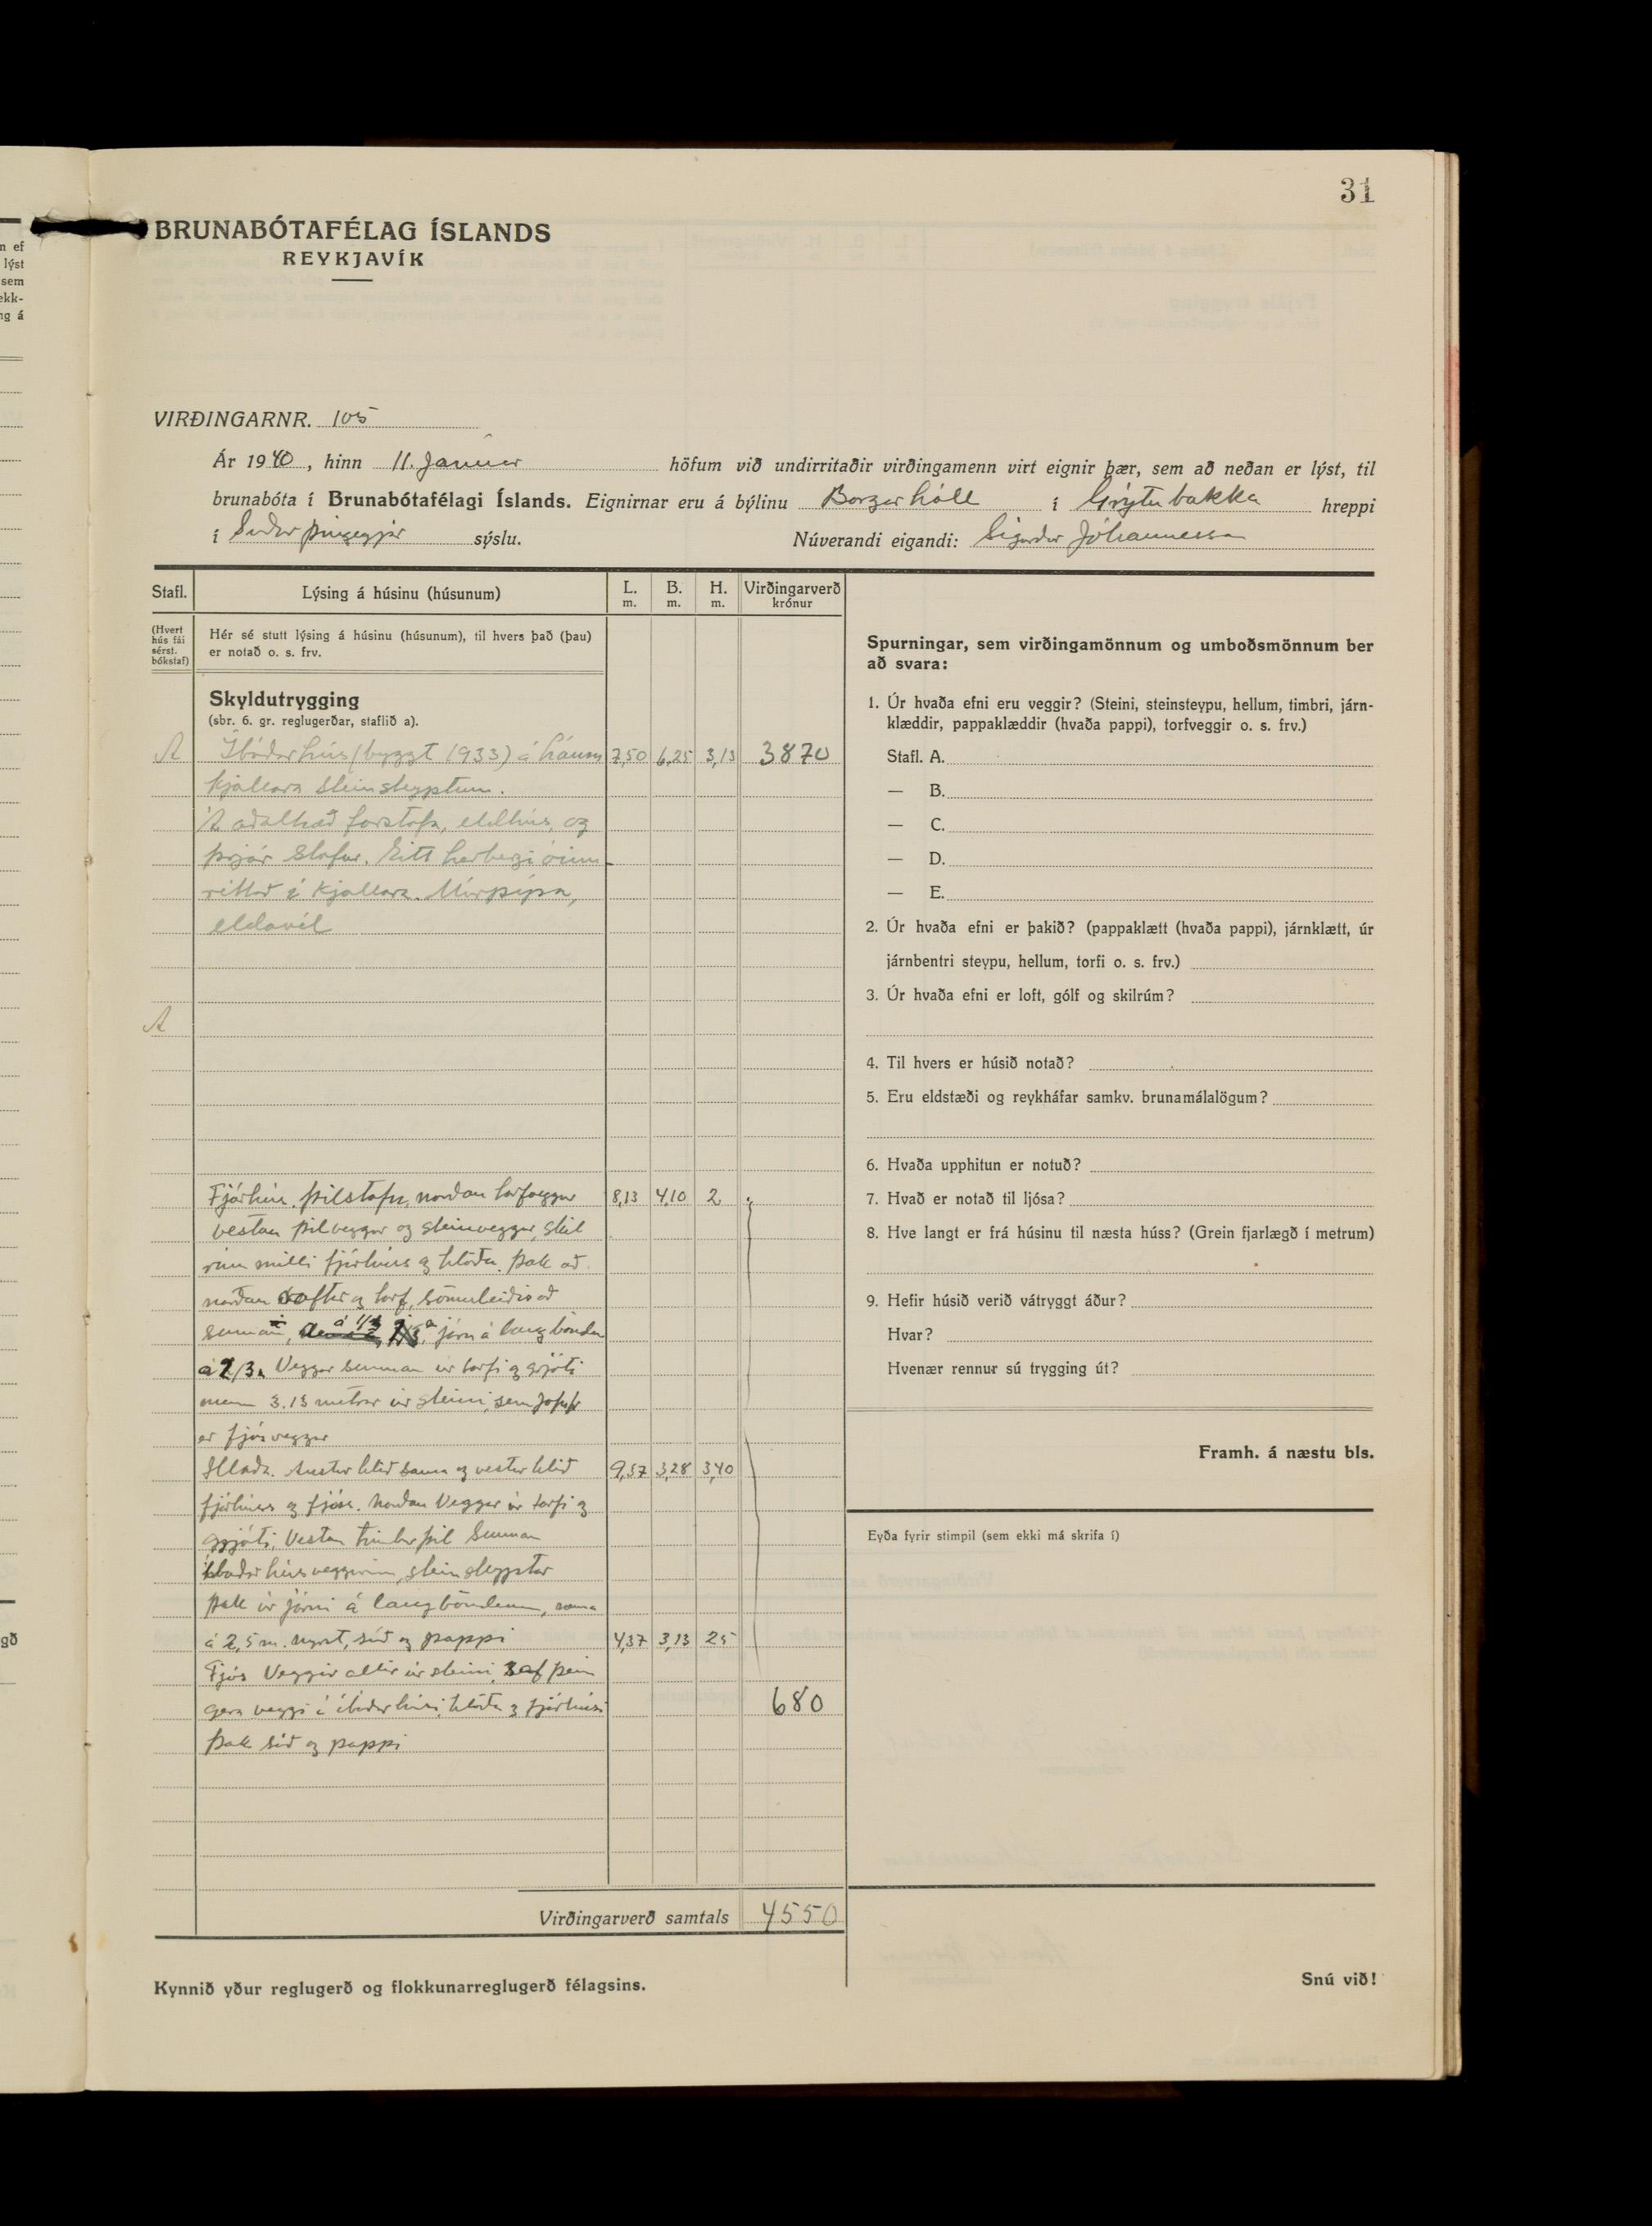 31
BRUNABÓTAFÉLAG ÍSLANDS
REYKJAVÍK
VIRÐINGARNR. 105
Ár 1940, hinn 11. Janúar höfum við undirritaðir virðingamenn virt eignir þær, sem að neðan er lýst, til
brunabóta í Brunabótafélagi Íslands. Eignirnar eru á býlinu Borgarhóll í Grýtubakka hreppi
í Suður þingeyjar sýslu. Núverandi eigandi: Sigurður Jóhannesson
Stafl. Lýsing á húsinu (húsunum) L. m. B. m. H. m. Virðingarverð krónur
(Hvert hús fái sérst. bókstaf)
Hér sé stutt lýsing á húsinu (húsunum), til hvers það (þau)
er notað o. s. frv.
Skyldutrygging
(sbr. 6. gr. reglugerðar, staflið a).
A Íbúðarhús (byggt 1933) á háum 7,50 6,25 3,13 3870
kjallara steinsteyptum.
Á aðalhæð forstofa, eldhús, og
þrjár stofur. Eitt herbergi óinn
réttað í kjallara. Múrpípa,
eldavél
A
Fjárhús. þilstafn, norðan torfveggur 8,13 4,10 2
vestan þilveggur og steinveggur, skil
rúm milli fjárhúss og hlöðu. Þak að
norðan raftur og torf, sömuleiðis að
sunnan, á 1/3 járn á langböndum
á 2/3. Veggur sunnan úr torfi og grjóti
nema 3.13 metrar úr steini, sem jafnfr
er fjósveggur
Hlaða. Austurhlið sama og vesturhlið 9,37 3,28 3,40
fjárhúss og fjóss. Norðan Veggur úr torfi og
grjóti. Vestan timburþil Sunnan
íbúðarhúsveggurinn, steinsteyptur
Þak úr járni á langböndum, nema
á 2,5 m. nyrst, súð og pappi 4,37 3,13 25
Fjós Veggir allir úr steini, 3 af þeim
gera veggi í íbúðarhúsi, hlöðu og fjárhúsi 680
Þak súð og pappi
Virðingarverð samtals 4550
Kynnið yður reglugerð og flokkunarreglugerð félagsins.
Spurningar, sem virðingamönnum og umboðsmönnum ber
að svara:
1. Úr hvaða efni eru veggir? (Steini, steinsteypu, hellum, timbri, járn-
klæddir, pappaklæddir (hvaða pappi), torfveggir o. s. frv.)
Stafl. A.
— B.
— C.
— D.
— E.
2. Úr hvaða efni er þakið? (pappaklætt (hvaða pappi), járnklætt, úr
járnbentri steypu, hellum, torfi o. s. frv.)
3. Úr hvaða efni er loft, gólf og skilrúm?
4. Til hvers er húsið notað?
5. Eru eldstæði og reykháfar samkv. brunamálalögum?
6. Hvaða upphitun er notuð?
7. Hvað er notað til ljósa?
8. Hve langt er frá húsinu til næsta húss? (Grein fjarlægð í metrum)
9. Hefir húsið verið vátryggt áður?
Hvar?
Hvenær rennur sú trygging út?
Framh. á næstu bls.
Eyða fyrir stimpil (sem ekki má skrifa í)
Snú við!